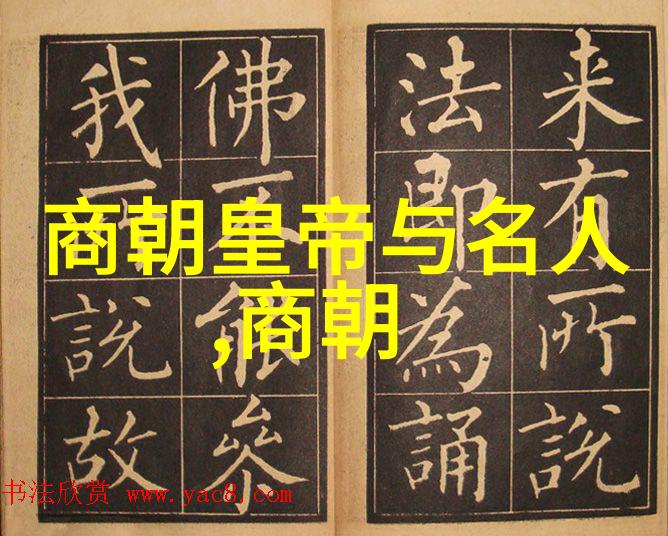 来有所說
法即為誦
佛不能叅
我所說故
商朝皇帝与名人
,商朝
书法欣赏 www.yac8.com